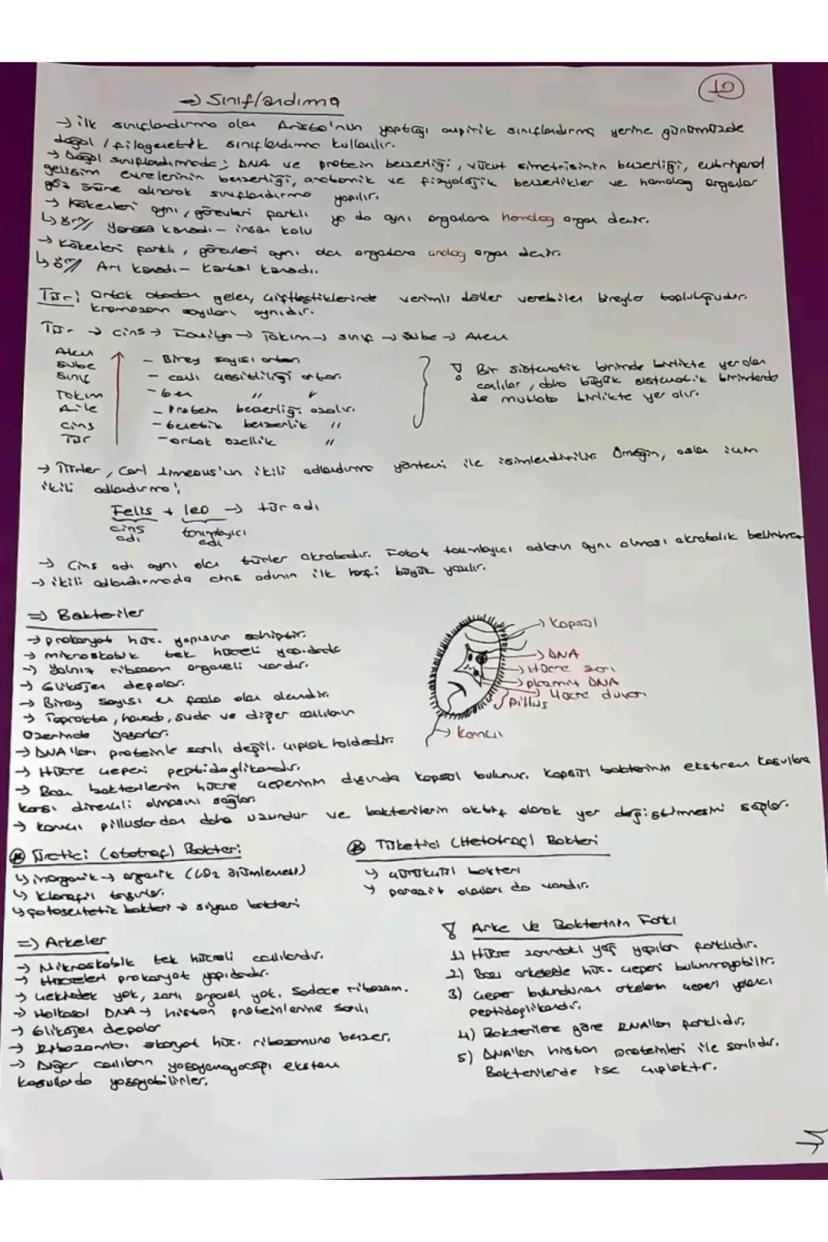 10
→ Sınıflandırma
→ İlk sınıflandırma olan Aristo'nun yaptığı ampirik sınıflandırma yerine günümüzde
doğal / filogenetik sınıflandırma kullanılır.
→ Doğal sınıflandırmada; DNA ve protein benzerliği, vücut simetrisinin benzerliği, embriyonal
gelişim evrelerinin benzerliği, anatomik ve fizyolojik benzerlikler ve homolog organlar
göz önüne alınarak sınıflandırma yapılır.
→ Kökenleri aynı, görevleri farklı ya da aynı organlara homolog organ denir.
↳ ör// Yarasa kanadı - insan kolu
→ Kökenleri farklı, görevleri aynı olan organlara analog organ denir.
↳ ör// Arı kanadı - Kartal kanadı.
Tür: Ortak atadan gelen, çiftleştiklerinde verimli döller verebilen bireyler topluluğudur.
Kromozom sayıları aynıdır.
Tür → Cins → Familya → Takım → Sınıf → Şube → Alem
Alem
Şube
Sınıf
Takım
Aile
Cins
Tür
- Birey sayısı artar
- canlı çeşitliliği artar.
- Gen " "
- Protein benzerliği azalır.
- Genetik benzerlik "
- ortak özellik "
! Bir sistematik birimde birlikte yer alan
canlılar, daha büyük sistematik birimlerde
de mutlaka birlikte yer alır.
→ Türler, Carl Linneaus'un ikili adlandırma yöntemi ile isimlendirilir. Örneğin, aslan için
ikili adlandırma;
Felis + leo → tür adı
cins adı
tanımlayıcı adı
→ Cins adı aynı olan türler akrabadır. Fakat tanımlayıcı adların aynı olması akrabalık belirtmez
→ ikili adlandırmada cins adının ilk harfi büyük yazılır.
⇒ Bakteriler
→ prokaryot hüc. yapısına sahiptir.
→ mikroskobik tek hücreli yapıdadır
→ Yalnız ribozom organeli vardır.
→ Glikojen depolar.
→ Birey sayısı en fazla olan alemdir.
→ Toprakta, havada, suda ve diğer canlıların
üzerinde yaşarlar.
→ DNA'ları proteinle sarılı değil. çıplak haldedir.
→ Hücre çeperi peptidoglikandır.
→ Bazı bakterilerin hücre çeperinin dışında kapsül bulunur. Kapsül bakterinin ekstrem koşullara
karşı dirençli olmasını sağlar.
→ Kamçı piluslardan daha uzundur ve bakterilerin aktif olarak yer değiştirmesini sağlar.
→ Kapsül
→ DNA
→ Hücre zarı
→ plazmit DNA
→ Hücre duvarı
Pillus
→ Kamçı
⊛ Üretici (ototrof) Bakteri
↳ inorganik → organik (CO2 özümlemesi)
↳ Klorofil taşırlar.
↳ fotosentetik bakteri → siyano bakteri
⊛ Tüketici (Hetotrof) Bakteri
↳ çürükçül bakteri
↳ parazit olanları da vardır.
⇒ Arkeler
→ Mikroskobik tek hücreli canlılardır.
→ Hücreleri prokaryot yapıdadır.
→ çekirdek yok, zarlı organel yok. Sadece ribozom.
→ Halkasal DNA → histon proteinlerine sarılı
→ Glikojen depolar
→ Ribozomları ökaryot hüc. ribozomuna benzer.
→ Diğer canlıların yaşayamayacağı ekstrem
koşullarda yaşayabilirler.
! Arke ve Bakterinin Farkı
1) Hücre zarındaki yağ yapıları farklıdır.
2) Bazı arkelerde hüc. çeperi bulunmayabilir.
3) Çeper bulunduran arkelerin çeperi yalancı
peptidoglikandır.
4) Bakterilere göre RNA'ları farklıdır.
5) DNA'ları histon proteinleri ile sarılıdır.
Bakterilerde ise çıplaktır.